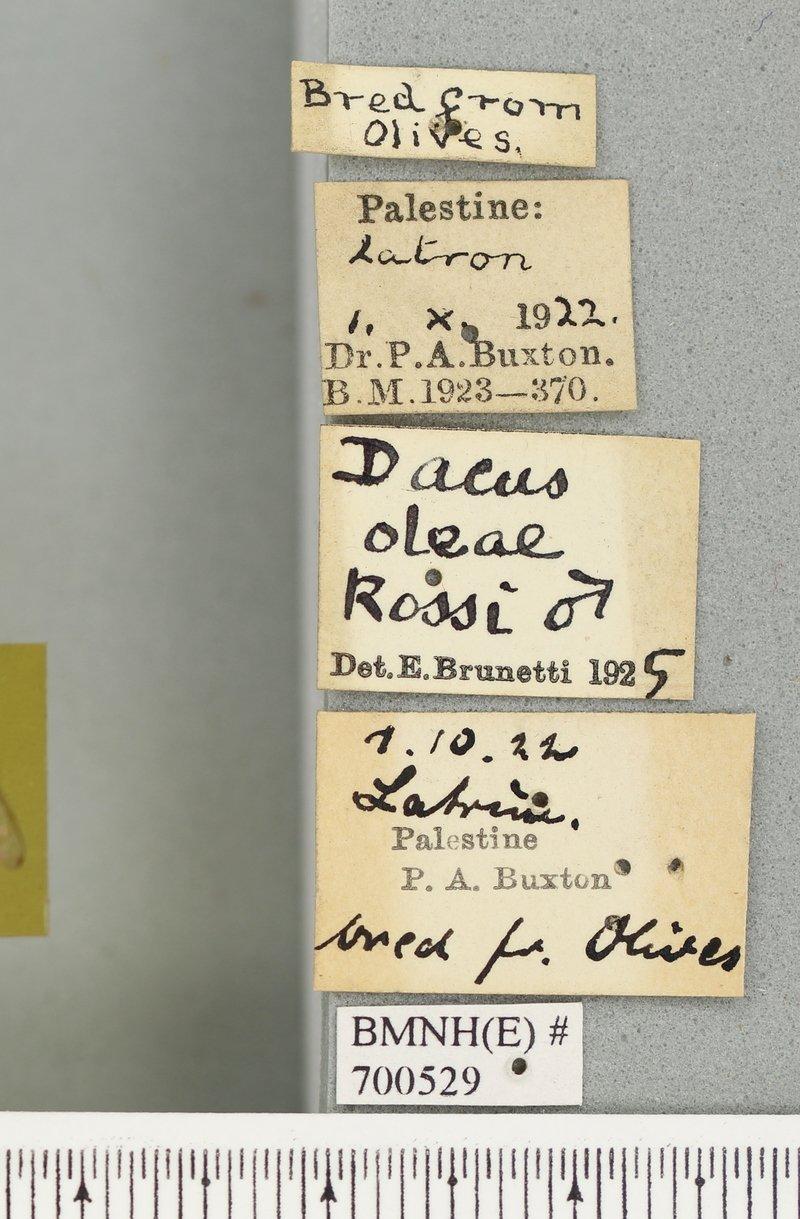 Bred from
Olives.
Palestine:
Latron
1. X. 1922.
Dr. P. A. Buxton.
B.M. 1923—370.
Dacus
oleae
Rossi ♂
Det. E. Brunetti 1925
1.10.22
Latrun.
Palestine
P. A. Buxton
bred fr. Olives
BMNH(E) #
700529